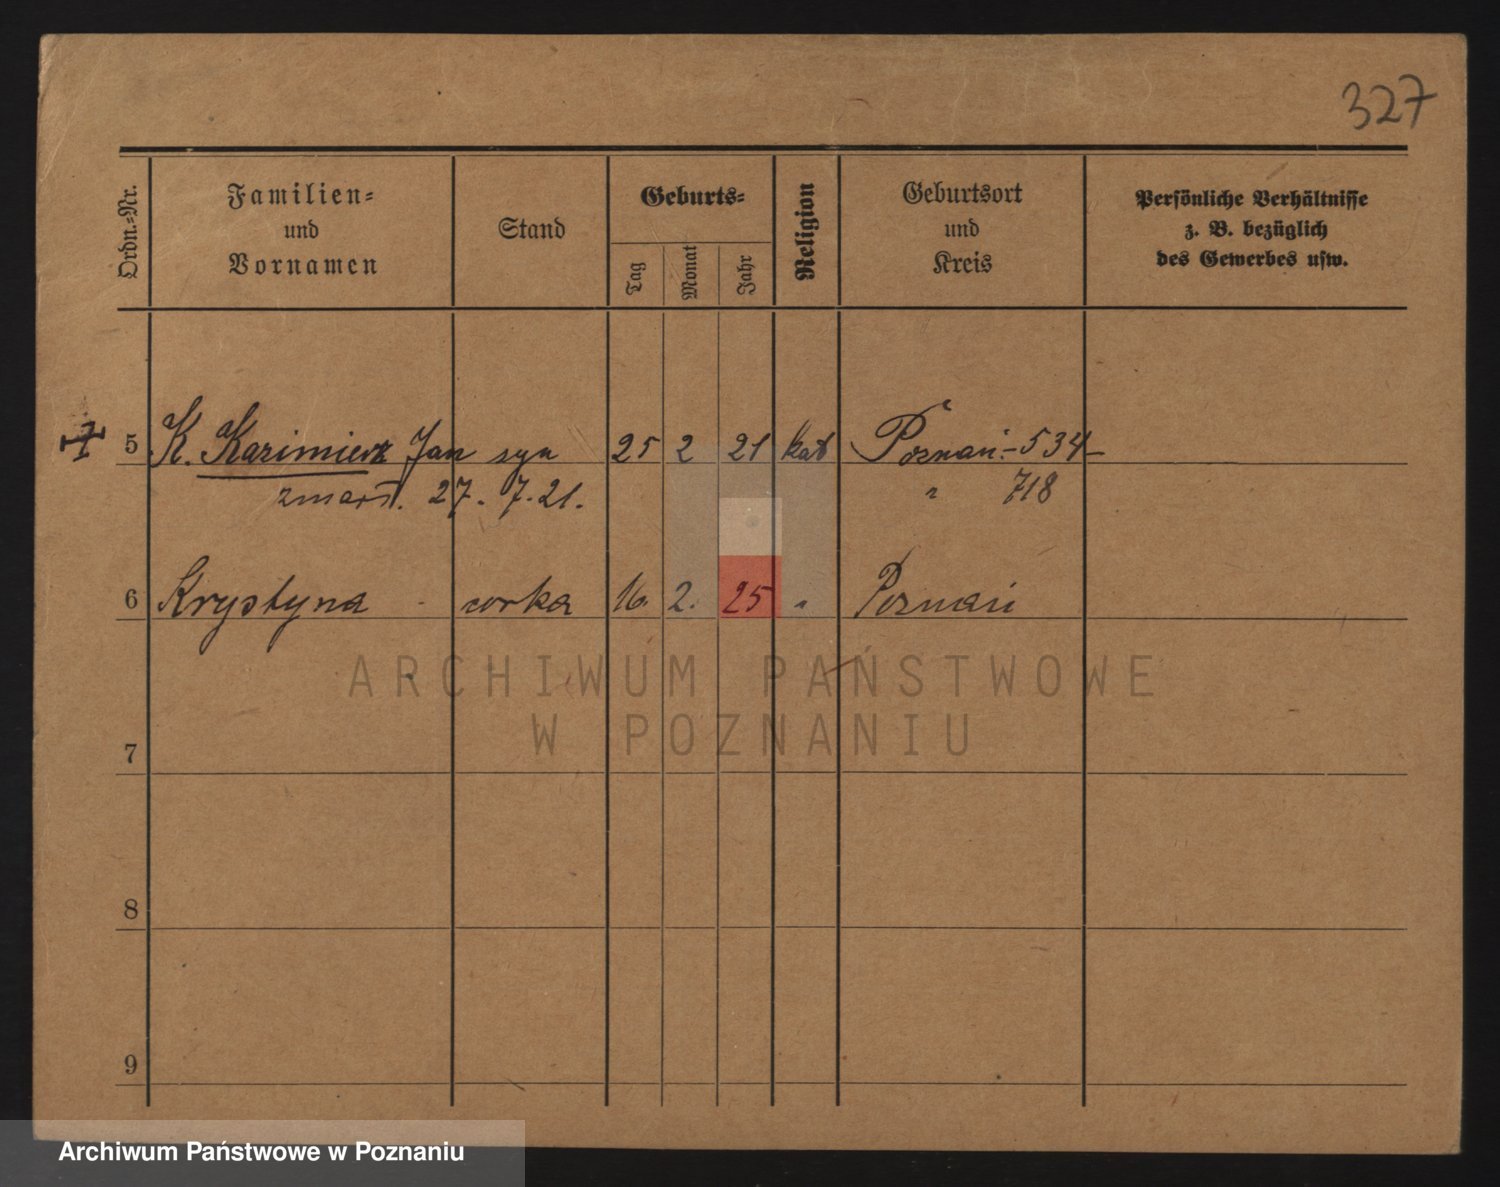 327
Ordn.-Nr.
Familien-
und
Vornamen
Stand
Geburts-
Tag
Monat
Jahr
Religion
Geburtsort
und
Kreis
Persönliche Verhältnisse
z. B. bezüglich
des Gewerbes usw.
5 K. Kazimierz Jan syn 25 2 21 kat Poznań - 534
zmarł. 27. 7. 21. " 718
6 Krystyna - corka 16. 2. 25 " Poznań
ARCHIWUM PAŃSTWOWE
W POZNANIU
7
8
9
Archiwum Państwowe w Poznaniu